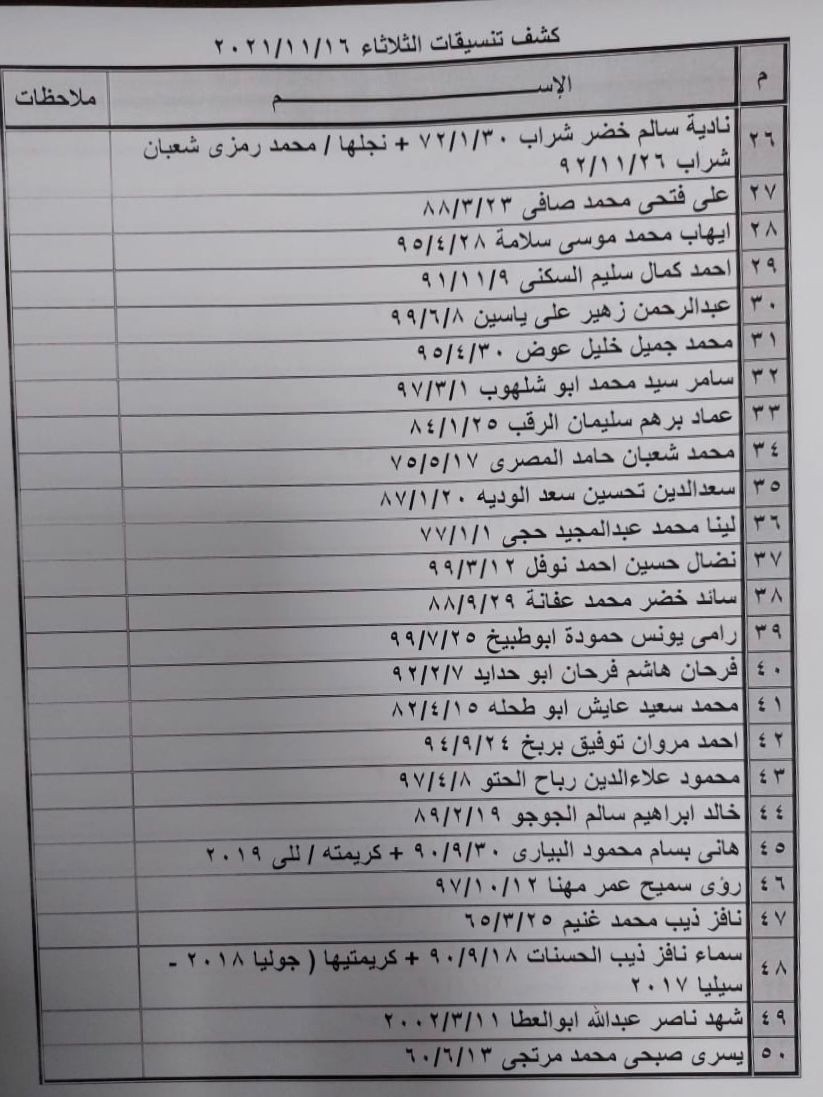 كشف تنسيقات الثلاثاء ٢٠٢١/١١/١٦
م الإســـــــــــم ملاحظات
٢٦ نادية سالم خضر شراب ٧٢/١/٣٠ + نجلها / محمد رمزى شعبان
شراب ٩٢/١١/٢٦
٢٧ على فتحى محمد صافى ٨٨/٣/٢٣
٢٨ ايهاب محمد موسى سلامة ٩٥/٤/٢٨
٢٩ احمد كمال سليم السكنى ٩١/١١/٩
٣٠ عبدالرحمن زهير على ياسين ٩٩/٦/٨
٣١ محمد جميل خليل عوض ٩٥/٤/٣٠
٣٢ سامر سيد محمد ابو شلهوب ٩٧/٣/١
٣٣ عماد برهم سليمان الرقب ٨٤/١/٢٥
٣٤ محمد شعبان حامد المصرى ٧٥/٥/١٧
٣٥ سعدالدين تحسين سعد الوديه ٨٧/١/٢٠
٣٦ لينا محمد عبدالمجيد حجى ٧٧/١/١
٣٧ نضال حسين احمد نوفل ٩٩/٣/١٢
٣٨ سائد خضر محمد عفانة ٨٨/٩/٢٩
٣٩ رامى يونس حمودة ابوطبيخ ٩٩/٧/٢٥
٤٠ فرحان هاشم فرحان ابو حدايد ٩٢/٢/٧
٤١ محمد سعيد عايش ابو طحله ٨٢/٤/١٥
٤٢ احمد مروان توفيق بربخ ٩٤/٩/٢٤
٤٣ محمود علاءالدين رباح الحتو ٩٧/٤/٨
٤٤ خالد ابراهيم سالم الجوجو ٨٩/٢/١٩
٤٥ هانى بسام محمود البيارى ٩٠/٩/٣٠ + كريمته / للى ٢٠١٩
٤٦ رؤى سميح عمر مهنا ٩٧/١٠/١٢
٤٧ نافز ذيب محمد غنيم ٦٥/٣/٢٥
٤٨ سماء نافز ذيب الحسنات ٩٠/٩/١٨ + كريمتيها ( جوليا ٢٠١٨ -
سيليا ٢٠١٧
٤٩ شهد ناصر عبدالله ابوالعطا ٢٠٠٢/٣/١١
٥٠ يسرى صبحى محمد مرتجى ٦٠/٦/١٣